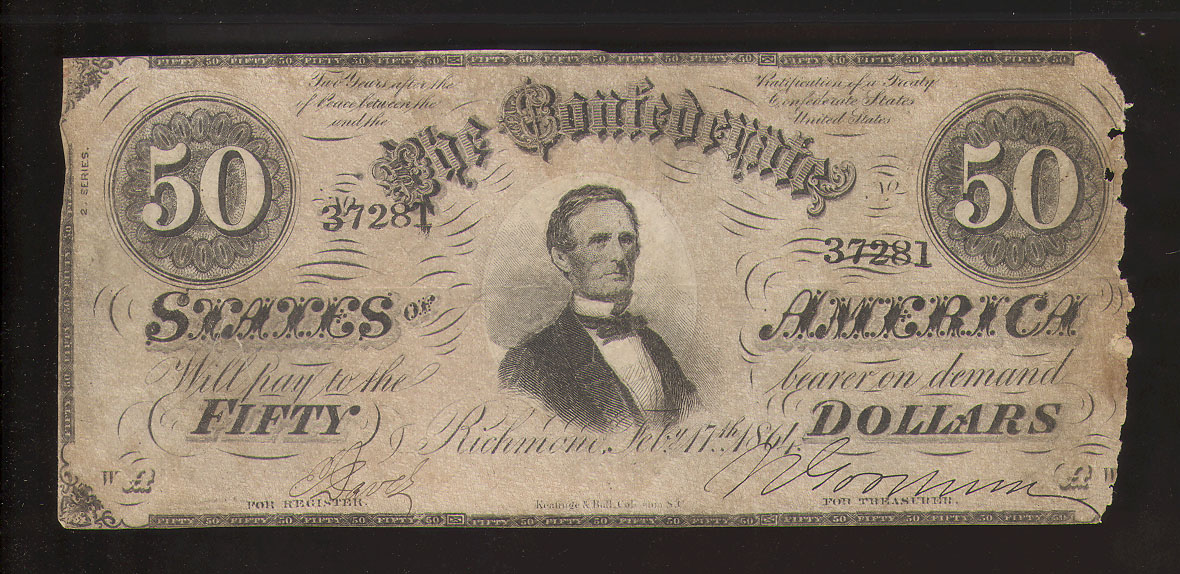 FIFTY 50 FIFTY 50 FIFTY 50 FIFTY 50 FIFTY 50 FIFTY 50 FIFTY 50 FIFTY 50 FIFTY 50
Two Years after the Ratification of a Treaty
of Peace between the Confederate States
and the United States
The Confederate
50
50
2 SERIES.
No
37281
No
37281
STATES OF AMERICA
Will pay to the bearer on demand
FIFTY DOLLARS
Richmond, Feby 17th 1864.
W
W
FOR REGISTER.
Keatinge & Ball, Columbia S.C.
FOR TREASURER.
FIFTY 50 FIFTY 50 FIFTY 50 FIFTY 50 FIFTY 50 FIFTY 50 FIFTY 50 FIFTY 50 FIFTY 50